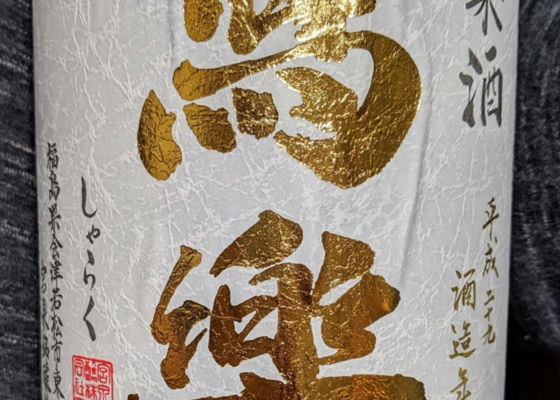 米酒
平成二十九
酒造年
寫樂
しゃらく
福島県会津若松市東